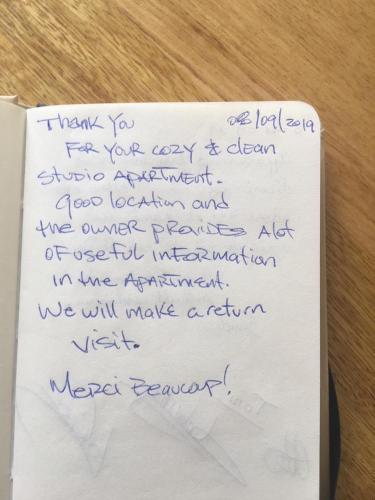 Thank You 08/09/2019
For your cozy & clean
studio apartment.
Good location and
the owner provides alot
of useful information
in the apartment.
We will make a return
visit.
Merci Beaucoup!